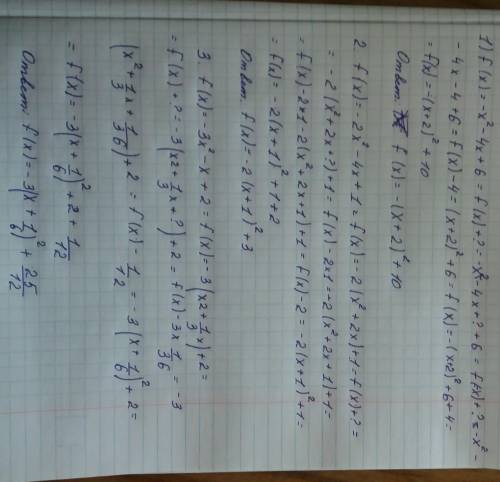 1) f(x) = -x²-4x+6 = f(x)+? = -x²-4x+?+6 = f(x)+? = -x²-
-4x-4+6 = f(x)-4 = (x+2)²+6 = f(x) = -(x+2)²+6+4 =
= f(x) = -(x+2)²+10
Ответ: f(x) = -(x+2)²+10
2 f(x) = -2x²-4x+1 = f(x) = -2(x²+2x)+1 = f(x)+? =
= -2(x²+2x+?)+1 = f(x)-2x1 = -2(x²+2x+1)+1 =
= f(x)-2x1-2(x²+2x+1)+1 = f(x)-2 = -2(x+1)²+1 =
= f(x) = -2(x+1)²+1+2
Ответ: f(x) = -2(x+1)²+3
3. f(x) = -3x²-x+2 = f(x) = -3(x²+1/3x)+2 =
= f(x)-? = -3(x²+1/3x+?)+2 = f(x)-3x1/36 = -3
(x²+1/3x+1/36)+2 = f(x)-1/12 = -3(x+1/6)²+2 =
= f(x) = -3(x+1/6)²+2+1/12
Ответ: f(x) = -3(x+1/6)²+25/12